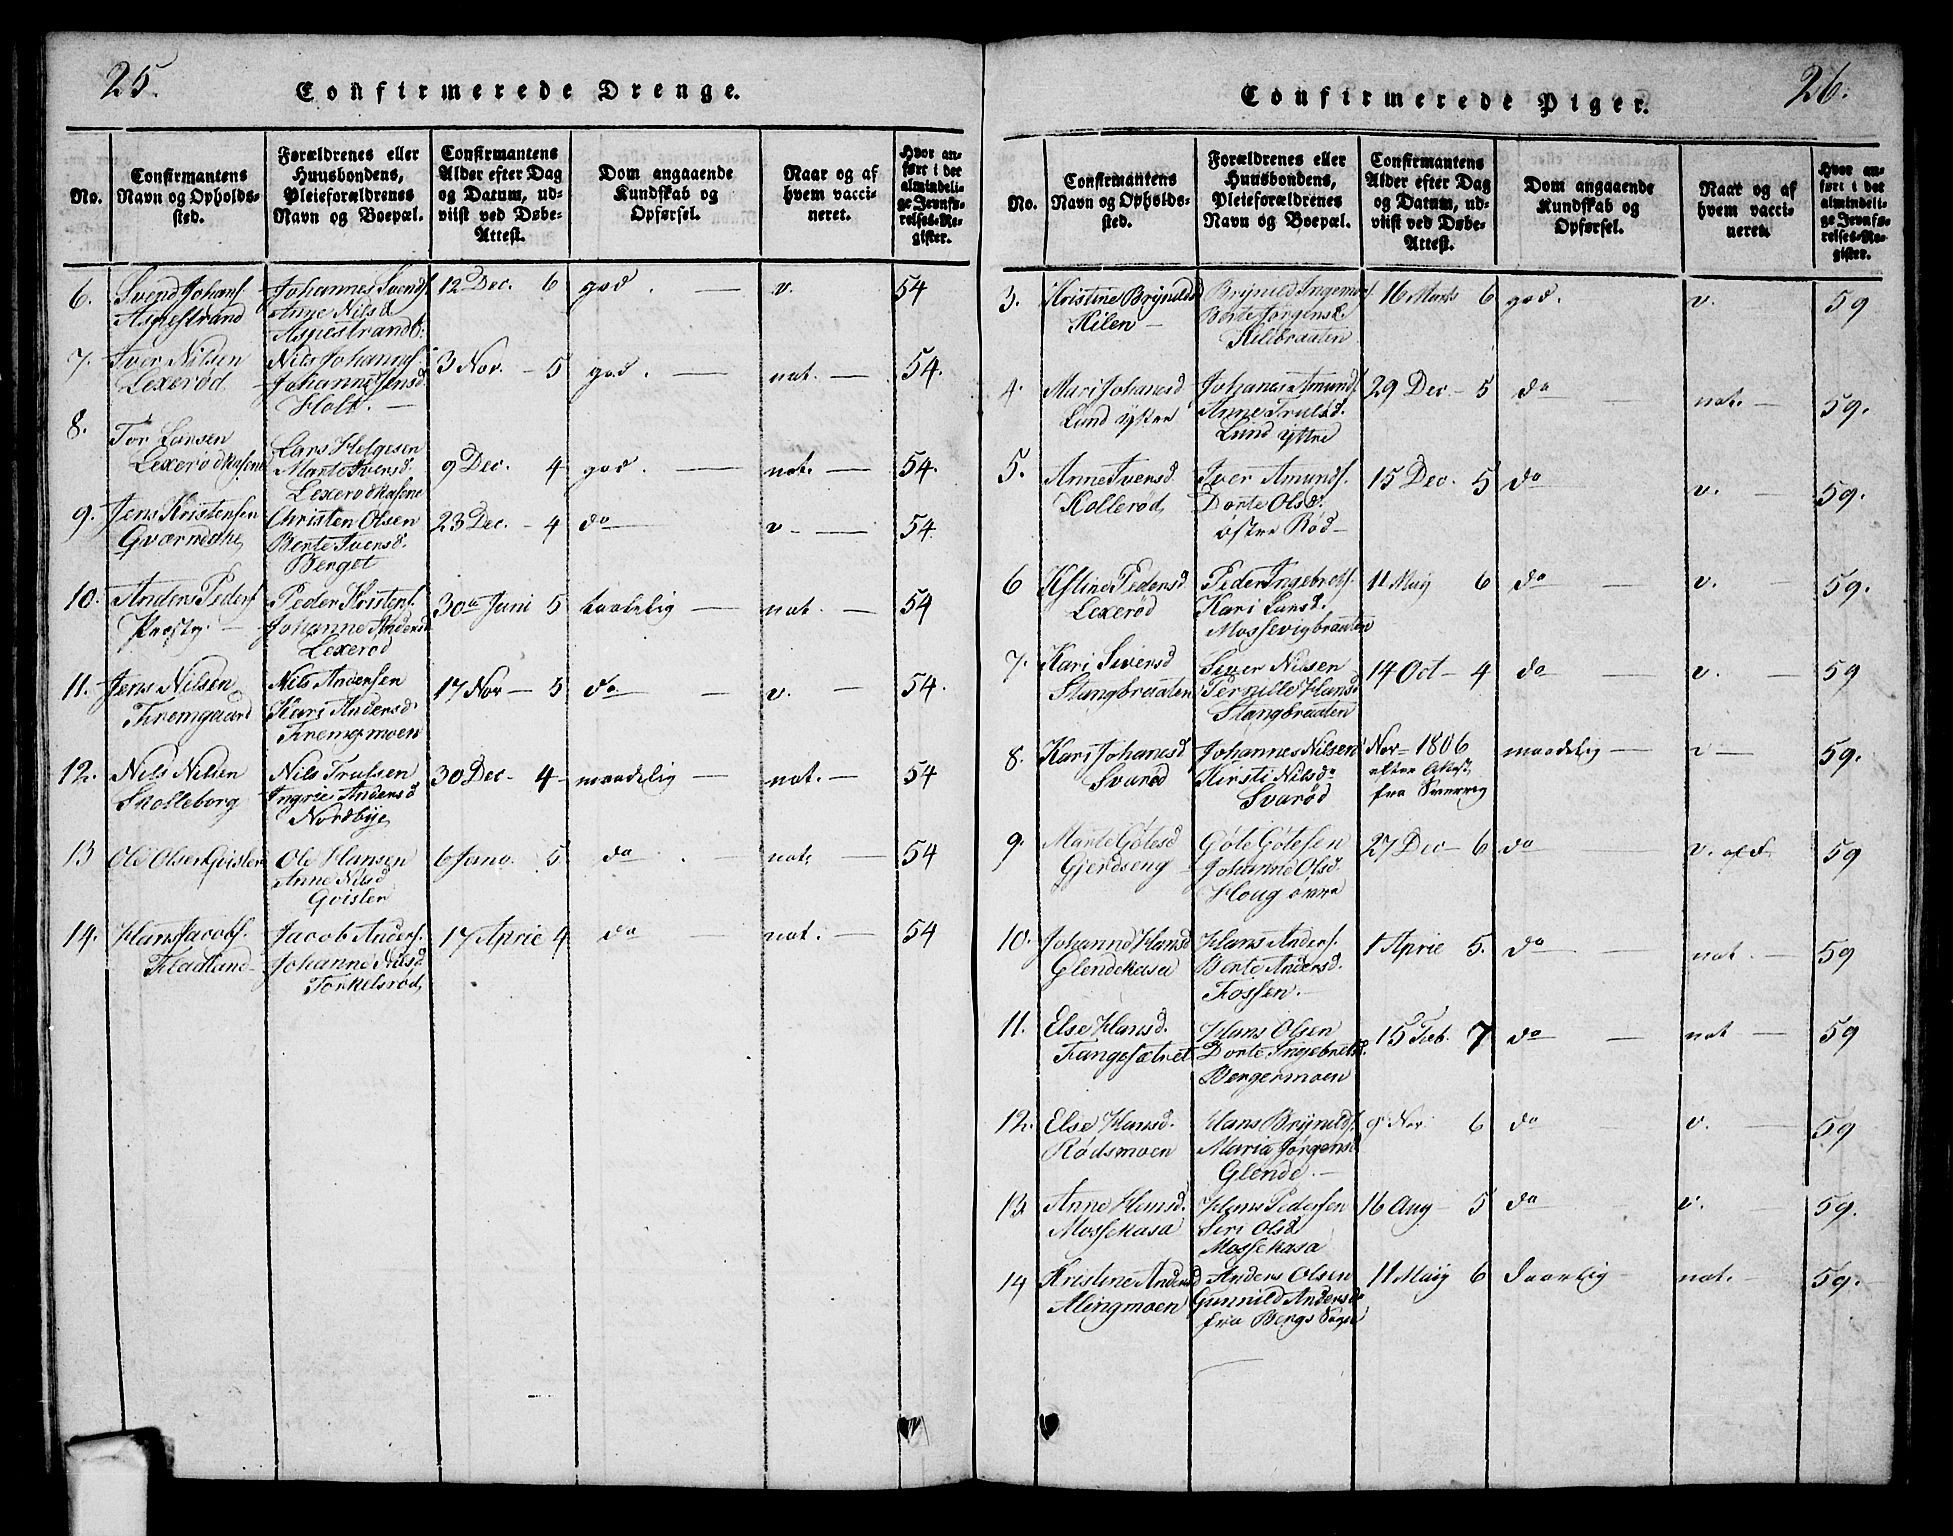 25.
Confirmerede Drenge.
No.
Confirmantens Navn og Opholds-sted.
Forældrenes eller Huusbondens, Pleieforældrenes Navn og Boepæl.
Confirmantens Alder efter Dag og Datum, ud-viist ved Døbe-Attest.
Dom angaaende Kundskab og Opførsel.
Naar og af hvem vacci-neret.
Hvor an-ført i det almindeli-ge Jevnfø-relses-Re-gister.
6. Svend Johans. Johannes Svends. 12 Dec. 6 god. — v. 54
Aspestrand Anne Nilsd
Aspestrand
7. Iver Nilsen Nils Johans. 3 Nov. — 5 god. — nat. — 54.
Lexerød Johanne
Holt. —
8. Tor Larsen Lars Helgesen 9 Dec. 4 god. — nat. — 54.
Lexerødkasene Marte Iversd.
Lexerødkasene
9. Jens Kristensen Christen Olsen 23 Dec. — 4 do v — 54.
Berte Iversd.
Berget
10. Anders Peders. Peder Kristens. 30 Juni 5 taalelig — nat. — 54
Johanne Andersd
Lexerød
11. Jens Nilsen Nils Andersen 17 Nov — 5 do — v. — 54.
Fremgaard Kari Andersd.
Fremgmoen
12. Nils Nilsen Nils Trulsen 30 Dec — 4 maadelig — nat. — 54
Skolleborg Ingrie Andersd
Nordbye
13 Ole Olsen Gvisten Ole Hansen 6 Janv. 5 do — nat. — 54
Anne Nilsd
Gvisten
14. Hans Jacobs. Jacob Anders. 17 April 4 do nat. — 54
Fladland Johanne Nilsd
Torkelsrød
26.
Confirmerede Piger.
No.
Confirmantens Navn og Opholds-sted.
Forældrenes eller Huusbondens, Pleieforældrenes Navn og Boepæl.
Confirmantens Alder efter Dag og Datum, ud-viist ved Døbe-Attest.
Dom angaaende Kundskab og Opførsel.
Naar og af hvem vacci-neret.
Hvor an-ført i det almindeli-ge Jevnfø-relses-Re-gister.
3. Kristine Brynilds Brynild Ingemor 16 Marts 6 god. v. 59
Kilen — Berte Jørgensd.
Kilebraaten
4. Mari Johansd Johanes Amunds. 29 Dec — 5 do nat. — 59.
Lund ÿttre Anne Trulsd.
Lund ÿttre
5. Anne Iversd Iver Amunds. 15 Dec. 5 do v. — 59.
Kollerød Dorte Olsd.
østre Rød —
6 Pedersd Peder Ingebrets. 11 Maÿ 6 do v. — 59.
Lexerød Kari Larsd.
Mossevigbraaten
7. Kari Siversd Siver Nilsen 14 Oct — 4 do v. — 59
Stangbraaten Pernille Hansd
Stangbraaten
8. Kari Johansd Johannes Nilsen Nov — 1806 maadelig — v — 59.
Svarød Kirsti Nilsd. efter Attest
Svarød fra Sverrig
9. Marte Gøtesd Gøte Gøtesen 27 Dec — 6 do v. af 59
Gjerdseng Johanne Olsd.
Houg
10. Johanne Hansd Hans Anders. 1 April 5. do nat. — 59
Glendekasa Berte Andersd.
Fossen. —
11. Else Hansd. Hans Olsen 15 Feb. 7 do — nat — 59
Tangesætret Dorte Ingebretsd.
Bergermoen
12. Else Hansd. Hans Brynilds. Nov. 6 do v. — 59
Rødsmoen Maria Jørgensd
Glende. —
13 Anne Hansd. Hans Pedersen 16 Aug — 5 do v. — 59.
Mossekasa Siri Olsd
Mossekasa
14 Kristine Andersd Anders Olsen 11 Maÿ 6 daarlig — nat. — 59.
Alingmoen Gunnild Andersd
fra Bergs Sogn